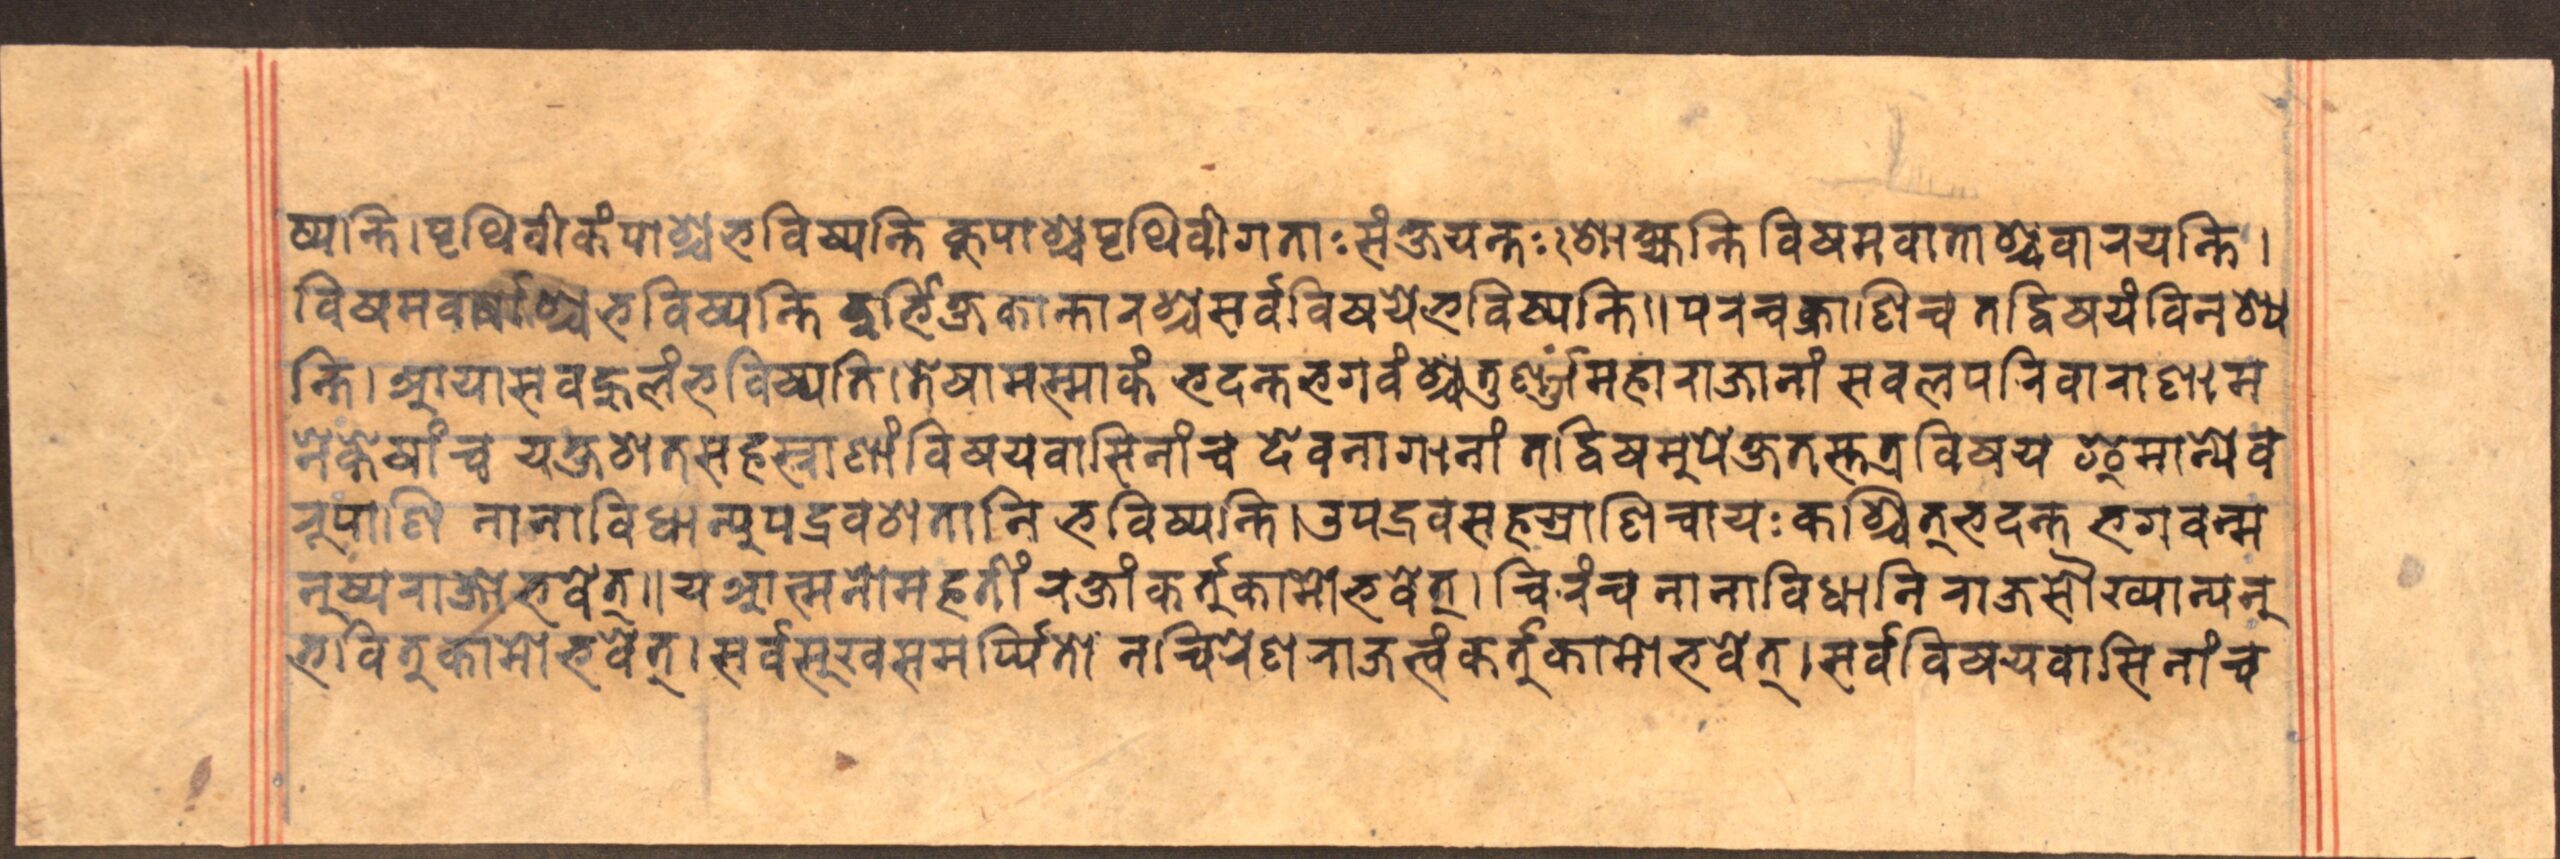 ष्यन्ति।पृथिवीकंपाश्चभविष्यन्ति कूपाश्चपृथिवीगताःसंक्षयन्तःशोक्ष्यन्ति विषमवाताश्चवारयन्ति।
विषमवर्षाश्चभविष्यन्ति दुर्भिक्षकान्तारश्चसर्वविषयेभविष्यन्ति॥परचक्राणिच तद्विषयंविनश्य
न्ति।आयासवहुलंभविष्यति।तेषामस्माकं भदन्तभगवंश्चतुर्ण्णांमहाराजानां सवलपरिवाराणाम
नेकेषांच यक्षशतसहस्राणांविषयवासिनांच देवनागानां तद्विषमुपेक्षतस्तत्रविषय इमान्येव
रूपाणि नानाविधान्युपद्रवशतानि भविष्यन्ति।उपद्रवसहस्राणिचायःकश्चित्भदन्त भगवन्म
नुष्यराजोभवेत्॥यआत्मनोमहतीं रक्षांकर्तुकामोभवेत्।चिरंच नानाविधानि राजसौख्यान्यनु
भवितुकामोभवेत्।सर्वसुखसमर्प्पितो नचिरेणराजत्वंकर्तुकामोभवेत्।सर्वविषयवासिनांच